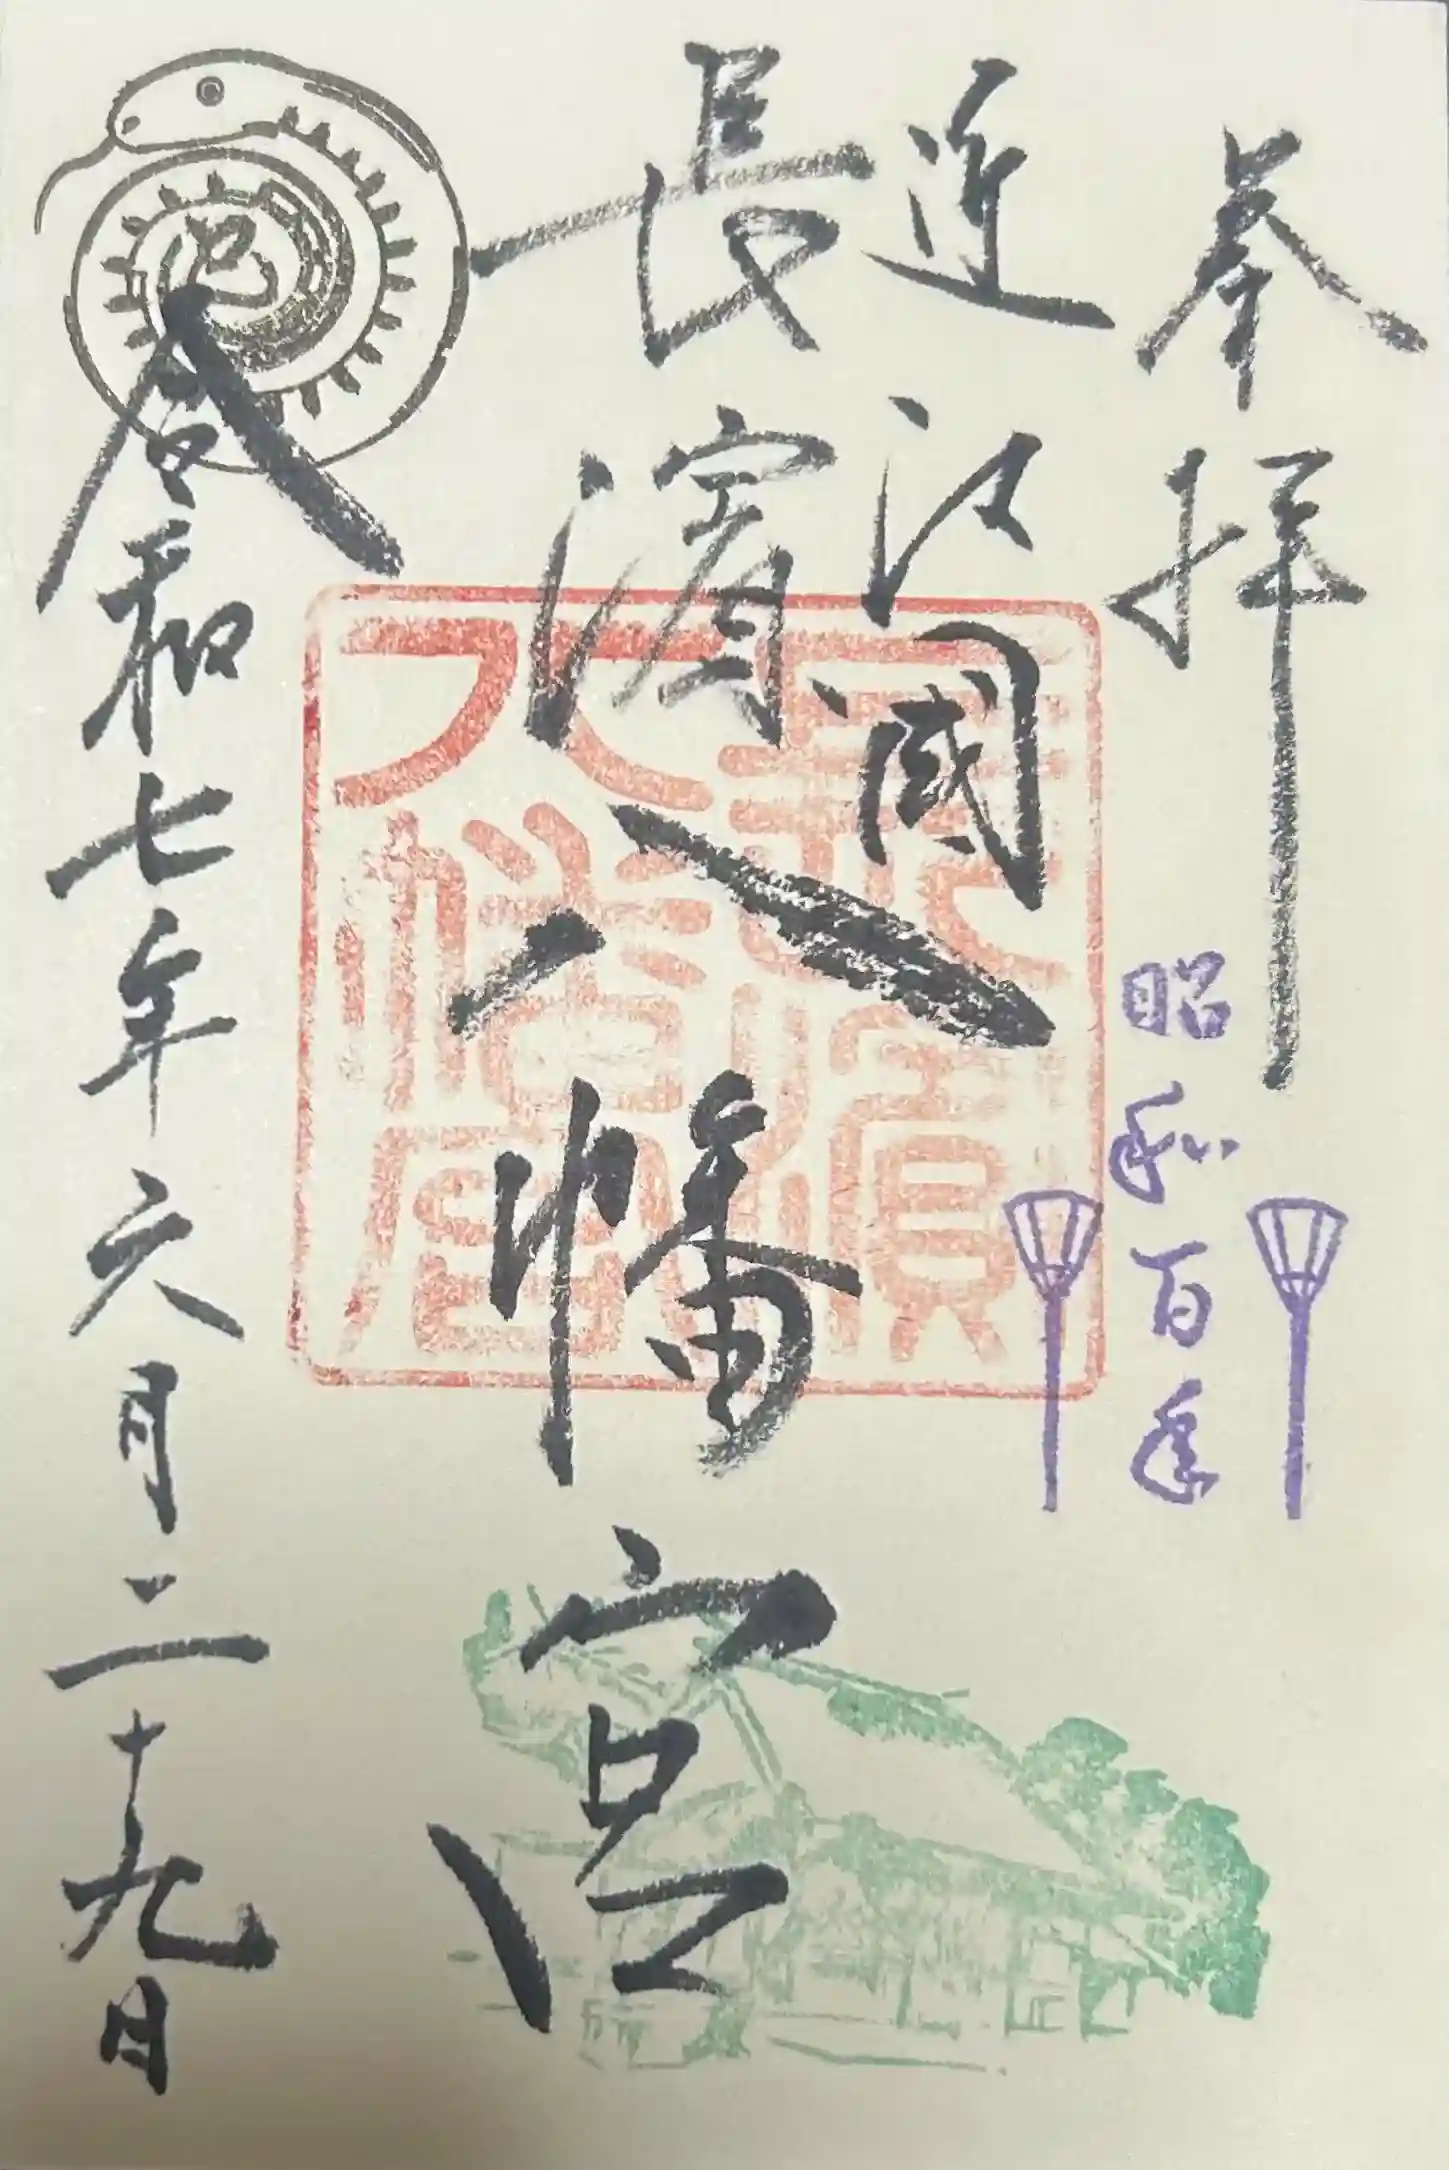 奉拝
昭和百年
近江國
長濱八幡宮
長濱八幡宮
巳
令和七年六月二十九日